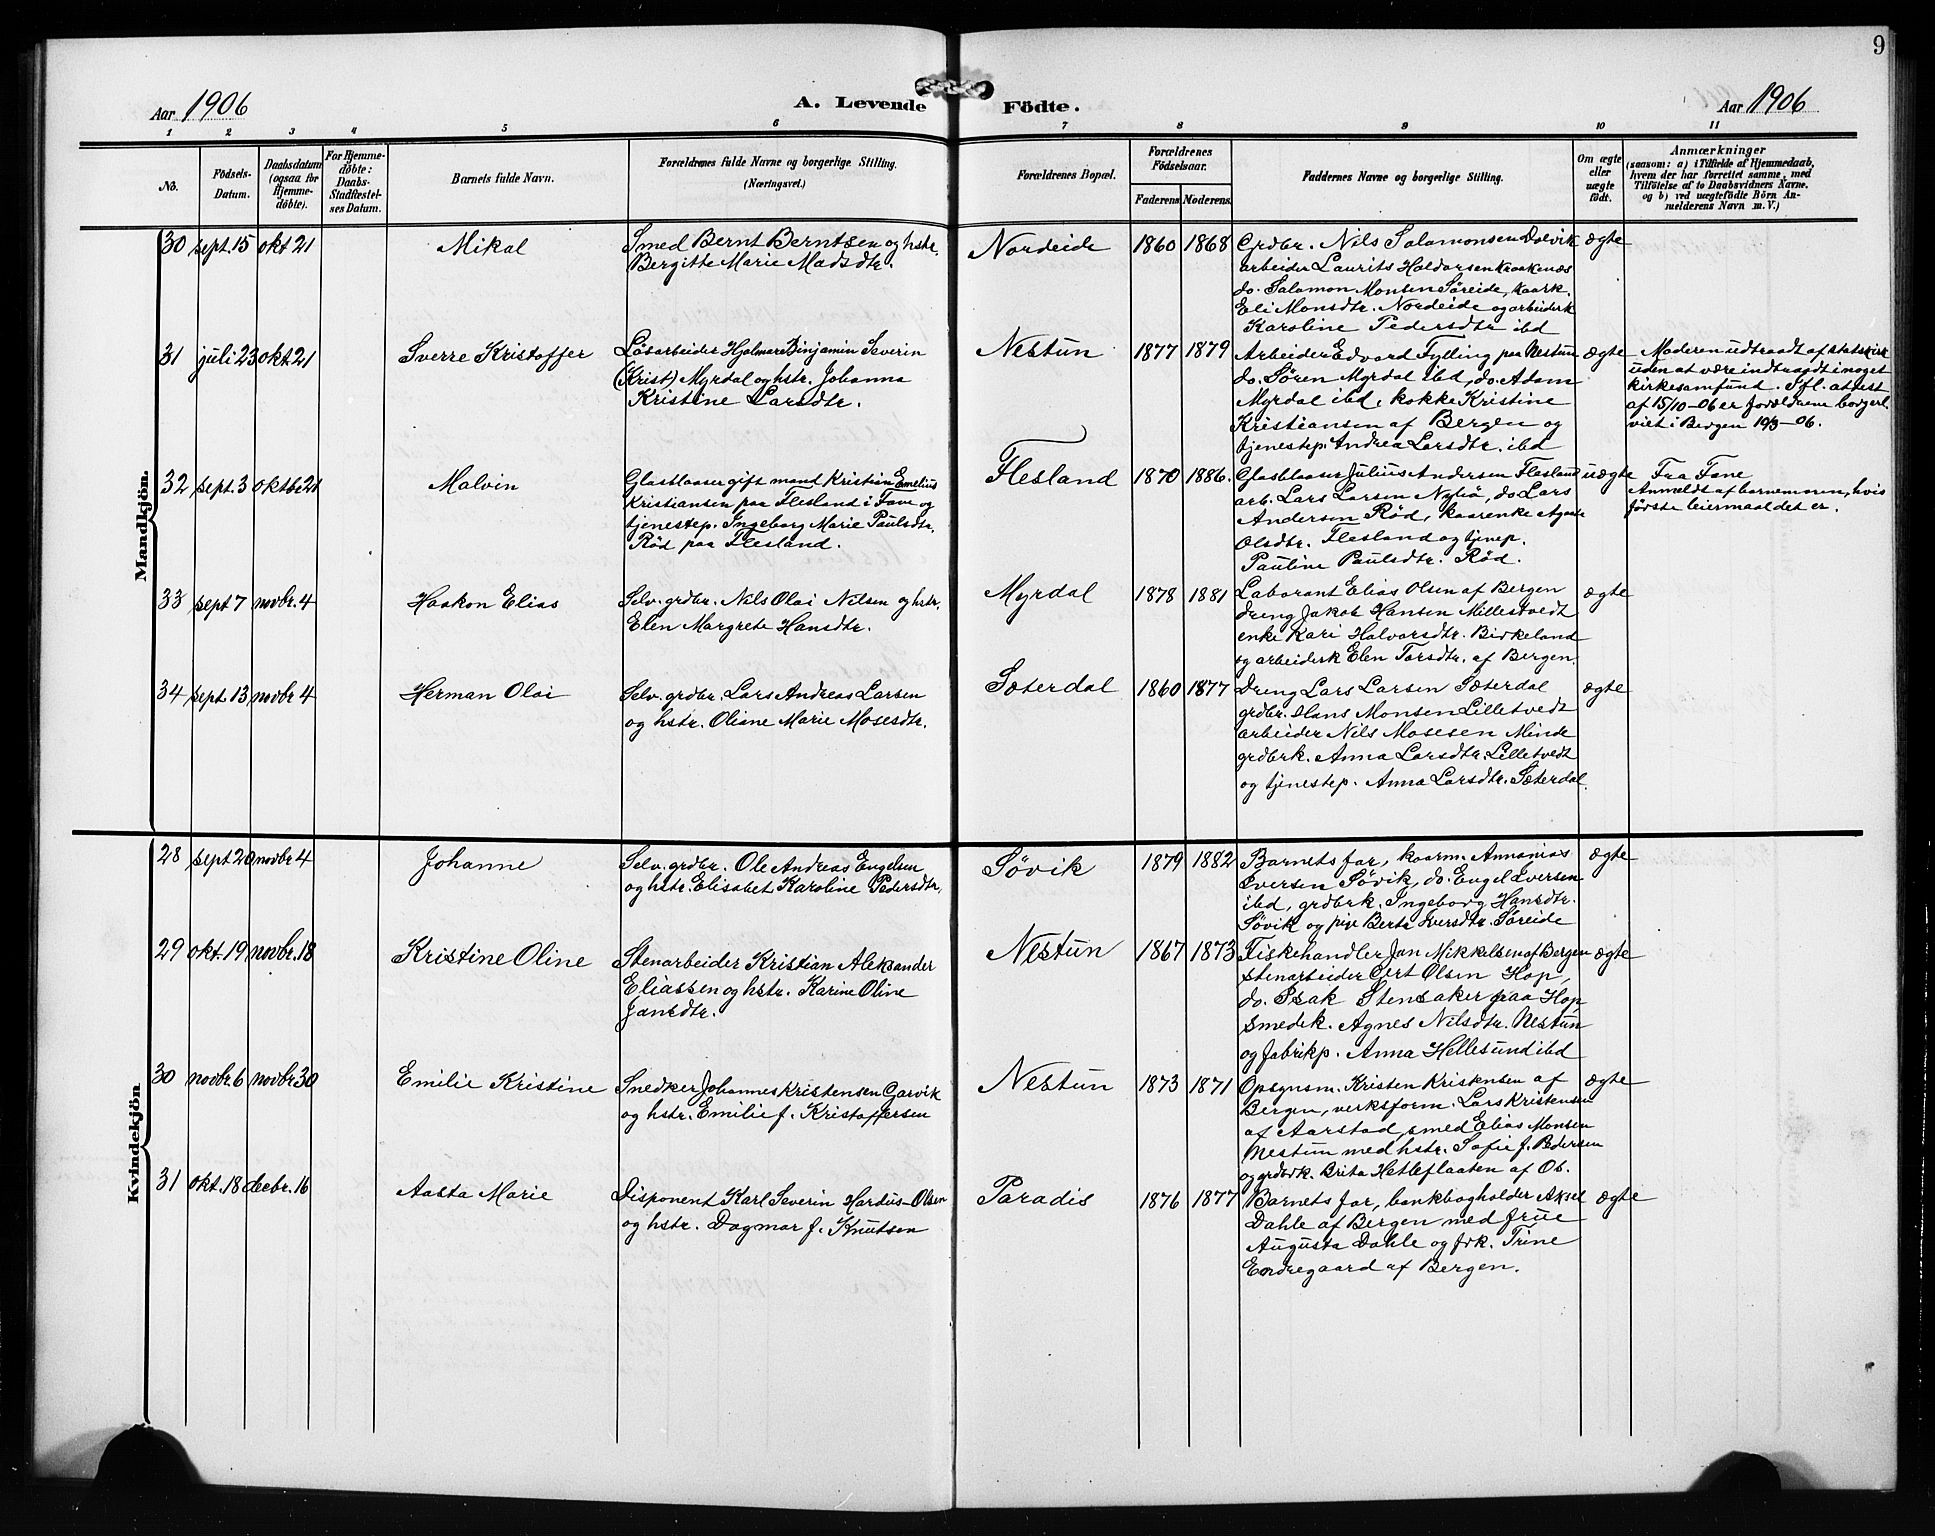 9
Aar 1906
A. Levende Födte.
Aar 1906
1 2 3 4 5 6 7 8 9 10 11
No.
Födsels-
Datum.
Daabsdatum
(ogsaa for
Hjemme-
döbte).
For Hjemme-
döbte:
Daabs-
Stadfæstel-
ses Datum.
Barnets fulde Navn.
Forældrenes fulde Navne og borgerlige Stilling.
(Næringsvei.)
Forældrenes Bopæl.
Forældrenes
Födselsaar.
Faderens Moderens
Faddernes Navne og borgerlige Stilling.
Om ægte
eller
uægte
födt.
Anmærkninger
(saasom: a) i Tilfælde af Hjemmedaab,
hvem der har forrettet samme, med
Tilföielse af to Daabsvidners Navne,
og b) ved uægtefödte Börn An-
melderens Navn m. V.)
Mandkjön.
30 sept. 15 okt 21
Mikal
Smed Bernt Berntsen og hstr.
Bergitte Marie Madsdtr.
Nordeide
1860 1868
Grdbr. Nils Salamonsen Dolvik
arbeider Laurits Haldorsen Kraakenæs
do. Salamon Monsen Søreide, kaark.
Eli Monsdtr. Nordeide og arbeiderk
Karoline Pedersdtr ibd
ægte
31 juli 23 okt 21
Sverre Kristoffer
Løsarbeider Hjalmar Binjamin Severin
(Krist) Myrdal og hstr. Johanna
Kristine Larsdtr.
Nestun
1877 1879
Arbeider Edvard Fylling paa Nestun
do. Søren Myrdal ibd, do. Adam
Myrdal ibd, kokke Kristine
Kristiansen af Bergen og
tjenestep. Andrea Larsdtr. ibd
ægte
Moderen udtraadt af statskirk
uden at være indtraadt i noget
kirkesamfund. Ifl. attest
af 15/10-06 er forældrene borgerl.
viet i Bergen 19/3-06.
32 sept. 3 oktbr 21
Malvin
Glasblaaser gift mand Kristian Emelius
Kristiansen paa Flesland i Fane og
tjenestep. Ingeborg Marie Paulsdtr.
Rød paa Flesland.
Flesland
1870 1886.
Glasblaaser Julius Andersen Flesland
arb. Lars Larsen Nybø, do. Lars
Anderson Rød, kaarenke Agate
Olsdtr. Flesland og tjenep.
Pauline Paulsdtr. Rød.
uægte
Fra Fane
Anmeldt af barnemoren, hvis
første leiermaal det er.
33 sept 7 novbr. 4
Haakon Elias
Selv. grdbr. Nils Olai Nilsen og hstr.
Elen Margrete Hansdtr.
Myrdal
1878 1881
Laborant Elias Olsen af Bergen
dreng Jakob Hansen Millestvedt
enke Kari Halvorsdtr. Birkeland
og arbeiderk Elen Torsdtr. af Bergen.
ægte
34 sept. 13 novbr. 4
Herman Olai
Selv. grdbr. Lars Andreas Larsen
og hstr. Oliane Marie Mosesdtr.
Sæterdal
1860 1877
Dreng Lars Larsen Sæterdal
grdbr. Hans Monsen Lilletvedt
arbeider Nils Mosesen Minde
grdbrk. Anna Larsdtr. Lilletvedt
og tjenestep. Anna Larsdtr. Sæterdal.
ægte
Kvindekjön
28 sept 20 novbr 4
Johanne
Selv. grdbr. Ole Andreas Engelsen
og hstr. Elisabet Karoline Pedersdtr.
Søvik
1879 1882
Barnets far, kaarm. Annanias
Iversen Søvik, do. Engel Iversen
ibd, grdbrk. Ingeborg Hansdtr.
Søvik og pige Berta Iversdtr. Søreide
ægte
29 okt. 19 novbr. 18
Kristine Oline
Stenarbeider Kristian Aleksander
Eliassen og hstr. Karine Oline
Jansdtr.
Nestun
1867 1873
Fiskehandler Jan Mikkelsen af Bergen
stenarbeider Gert Olsen Hop,
do. Isak Stensaker paa Hop
smedek. Agnes Nilsdtr. Nestun
og fabrikp. Anna Hellesund ibd
ægte
30 novbr. 6 novbr. 30
Emilie Kristine
Snedker Johannes Kristensen Garvik
og hstr. Emilie f. Kristoffersen
Nestun
1873 1871
Opsynsm. Kristen Kristensen af
Bergen, verksform. Lars Kristensen
af Aarstad, smed Elias Monsen
Nestum med hstr. Sofie f. Pedersen
og grdbrk. Brita Hetleflaaten af Os.
ægte
31 okt. 18 decbr. 16
Aasta Marie
Disponent Karl Severin Hardus-Olsen
og hstr. Dagmar f. Knutson
Paradis
1876 1877
Barnets far, bankbogholder Aksel
Dahle af Bergen med frue
Augusta Dahle og frk. Trine
Endregaard af Bergen.
ægte